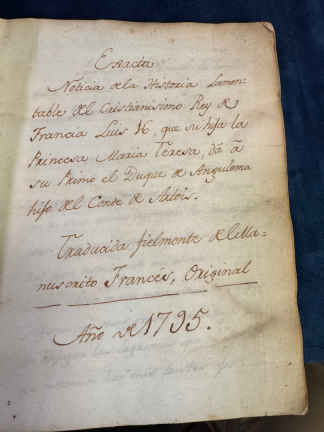 Exacta
Noticia de la Historia Lamen=
table del Cristianisimo Rey de
Francia Luis 16, que su hija la
Princesa Maria Teresa, dà à
su Primo el Duque de Anguloma
hijo del Conde de Artois.
Traducida fielmente del Ma=
nuscrito Francés, Original
Año de 1795.